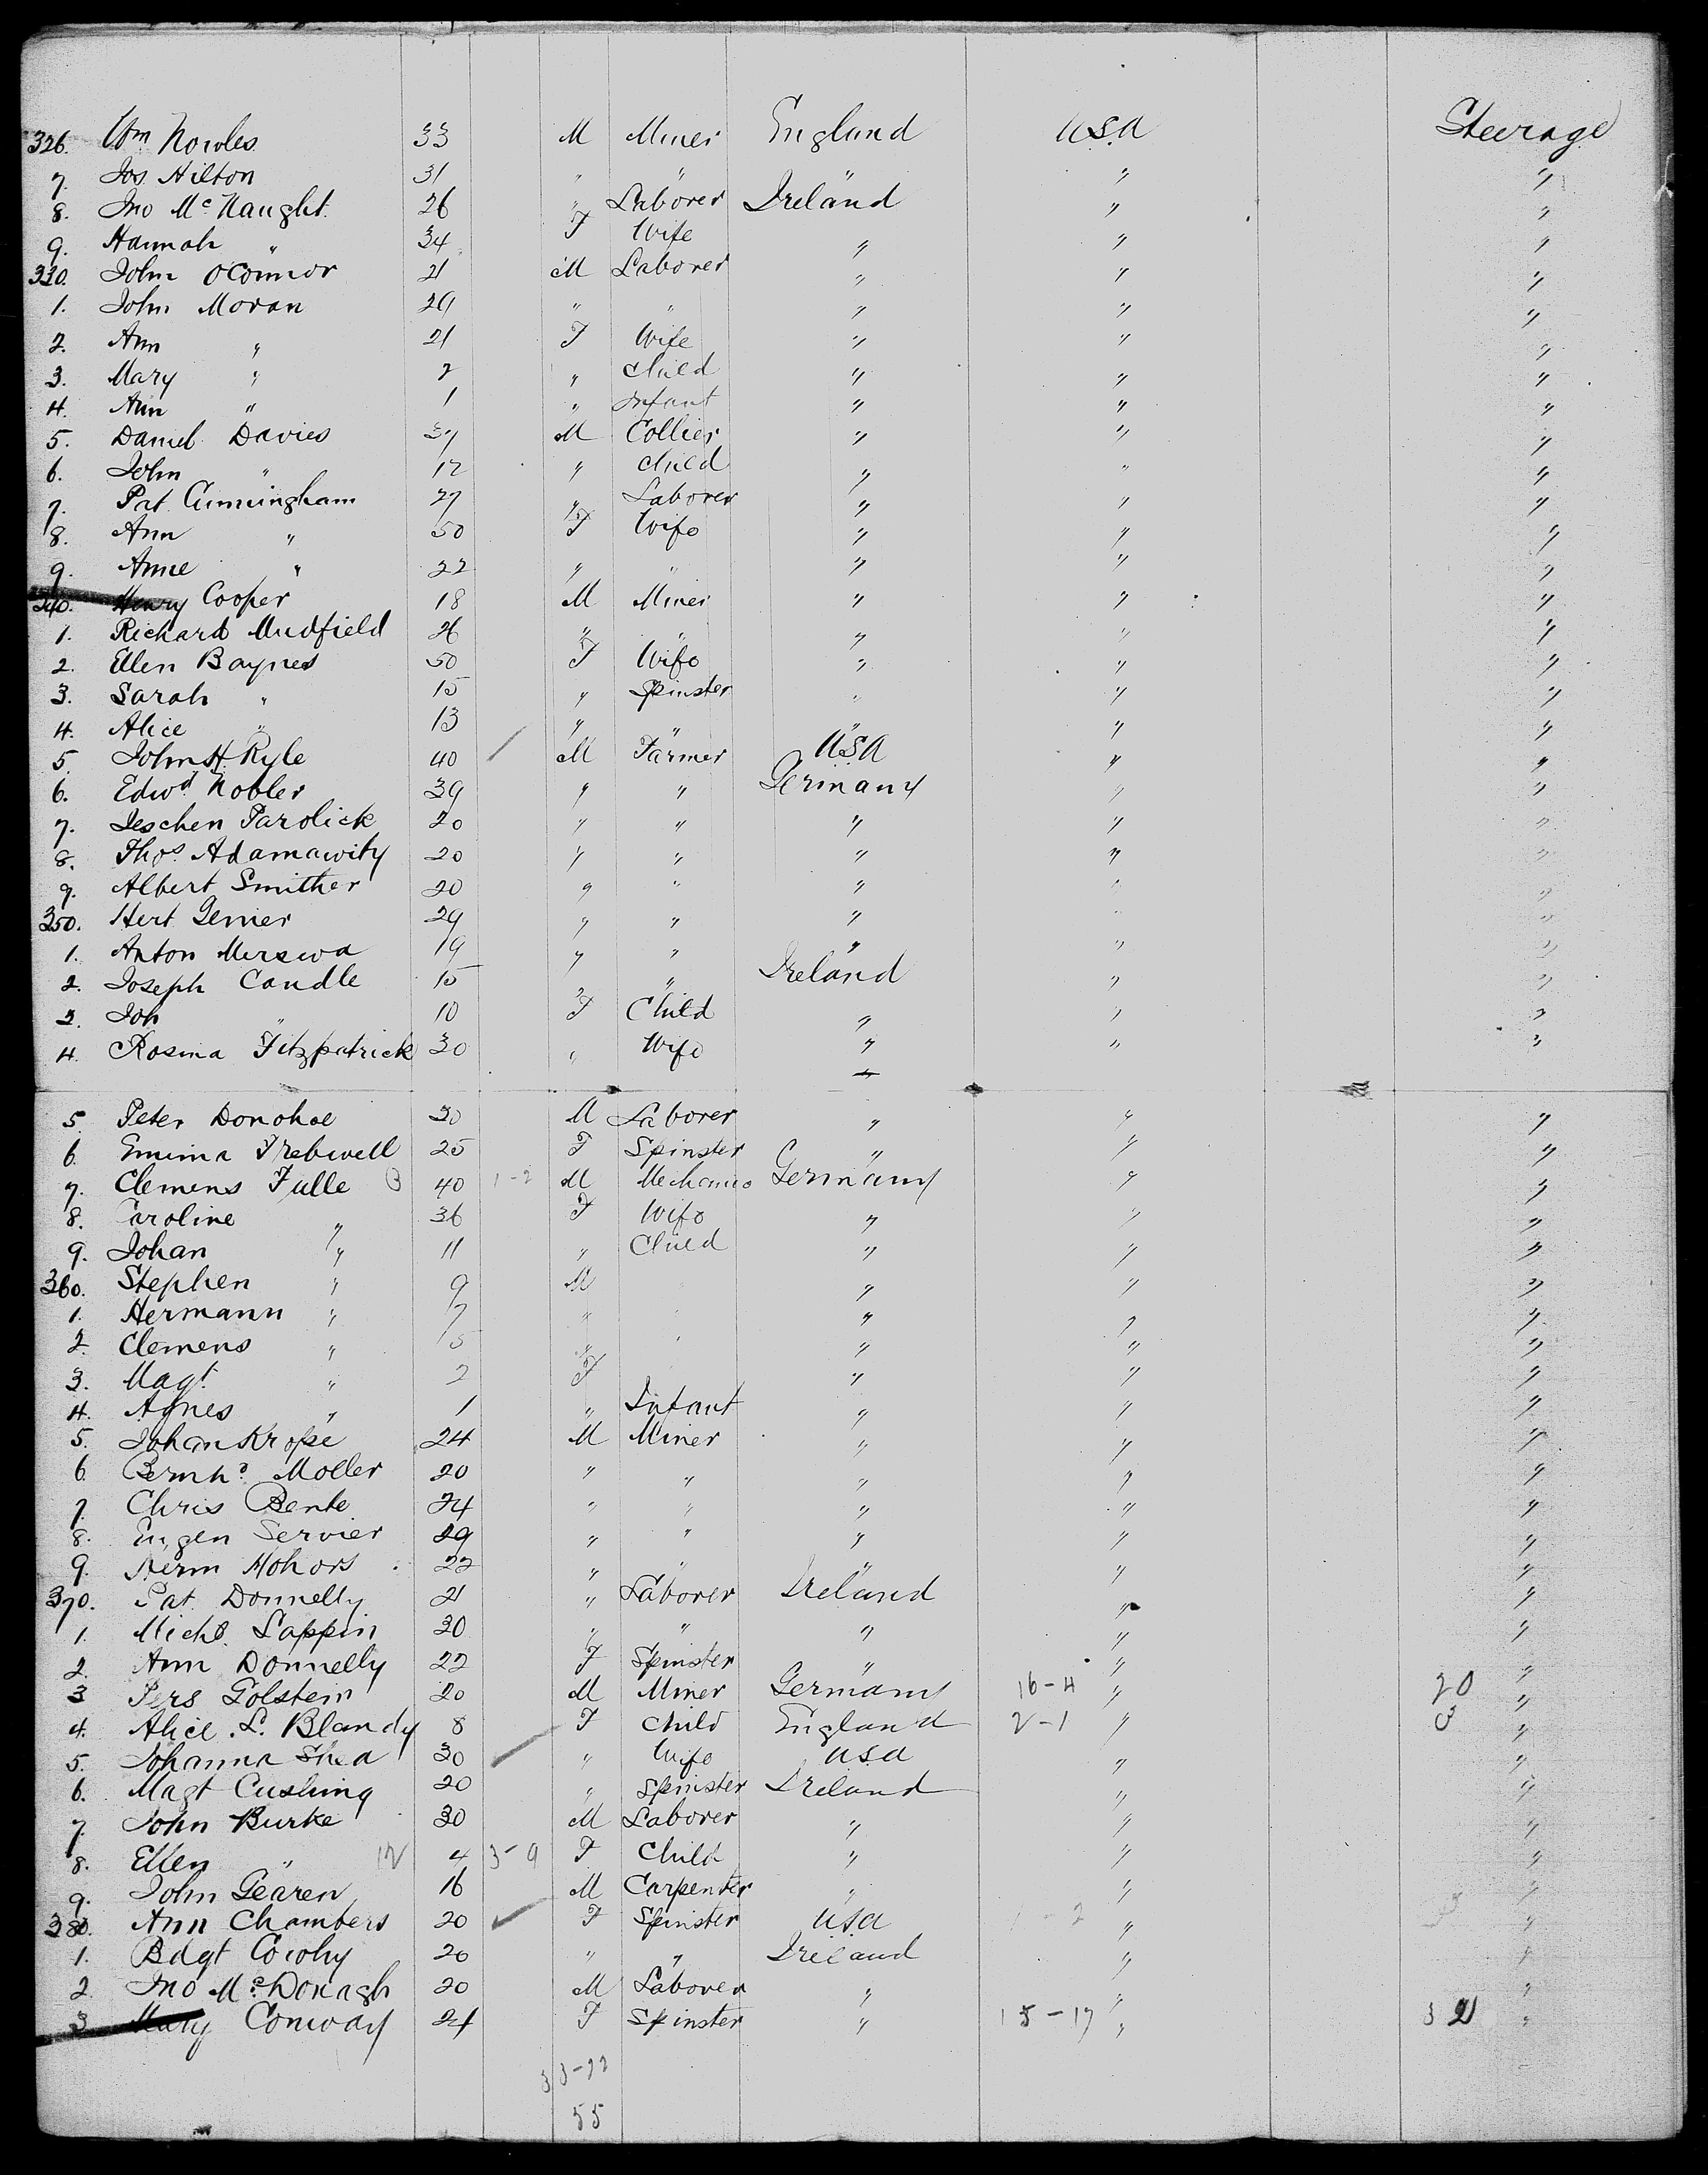 326. Wm Nowles 33 M Miner England USA Steerage
7. Jos Hilton 31 " " " " "
8. Jno McNaught 26 " Laborer Ireland " "
9. Hannah " 34 F Wife " " "
330. John OConnor 21 M Laborer " " "
1. John Moran 29 " " " " "
2. Ann " 21 F Wife " " "
3. Mary " 2 " Child " " "
4. Ann " 1 " Infant " " "
5. Daniel Davies 37 M Collier " " "
6. John " 12 " Child " " "
7. Pat Cunningham 27 " Laborer " " "
8. Ann " 50 F Wife " " "
9. Anne " 22 " " " " "
340. Henry Cooper 18 M Miner " " "
1. Richard Mudfield 26 " " " " "
2. Ellen Baynes 50 F Wife " " "
3. Sarah " 15 " Spinster " " "
4. Alice " 13 " " " " "
5. John H. Ryle 40 M Farmer USA " "
6. Edwd Nobler 39 " " Germany " "
7. Jeschen Parolick 20 " " " " "
8. Thos Adamawity 20 " " " " "
9. Albert Smither 20 " " " " "
350. Hert Gemer 29 " " " " "
1. Anton Merswa 19 " " " " "
2. Joseph Candle 15 " " Ireland " "
3. Joh " 10 F Child " " "
4. Rosina Fitzpatrick 30 " Wife " " "
5. Peter Donohoe 30 M Laborer " " "
6. Emma Trebwell 25 F Spinster " " "
7. Clemens Fulle 40 1-2 M Mechanic Germany " "
8. Caroline " 36 F Wife " " "
9. Johan " 11 " Child " " "
360. Stephen " 9 M " " "
1. Hermann " 7 " " " " "
2. Clemens " 5 " " " " "
3. Magt " 2 F " " "
4. Agnes " 1 " Infant " " "
5. Johan Kropse 24 M Miner " " "
6. Bernhd Moller 20 " " " " "
7. Chris Bente 24 " " " " "
8. Eugen Servier 29 " " " " "
9. Herm Mohors 22 " " " " "
370. Pat Donnelly 21 " Laborer Ireland " "
1. Michl Lappin 30 " " " " "
2. Ann Donnelly 22 F Spinster " " "
3 Pers Golstein 20 M Miner Germany 16-4 " 20 "
4. Alice L. Blandy 8 F Child England 2-1 " 3 "
5. Johanna Shea 30 " Wife USA " "
6. Magt Cushing 20 " Spinster Ireland " "
7. John Burke 30 M Laborer " " "
8. Ellen " 12 4 3-9 F Child " " "
9. John Gearen 16 M Carpenter " " "
380. Ann Chambers 20 F Spinster USA 1-2 " 3 "
1. Bdgt Cowhy 20 " " Ireland " "
2. Jno McDonagh 20 M Laborer " " "
3 Mary Conway 24 F Spinster " 15-17 " 32 "
33-22
55